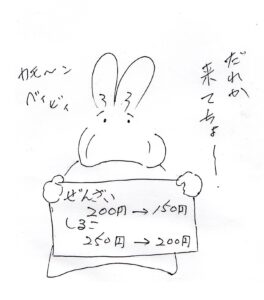 だれか
来てちょー!
カモ～ン
ベイビィ
ぜんざい
200円→150円
しるこ
250円→200円